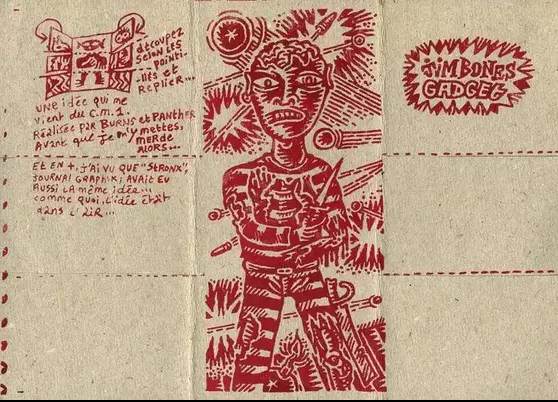 découpez
selon les
pointi-
llés et
replier...
une idée qui me
vient du C.M.1.
Réalisée par Burns et Panther
Avant que je m'y mettes,
merde
alors...
Et en +, j'ai vu que "Stronx"
journal graphik, avait eu
aussi la même idée...
comme quoi, l'idée était
dans l'air...
JIMBONES
GADGEG